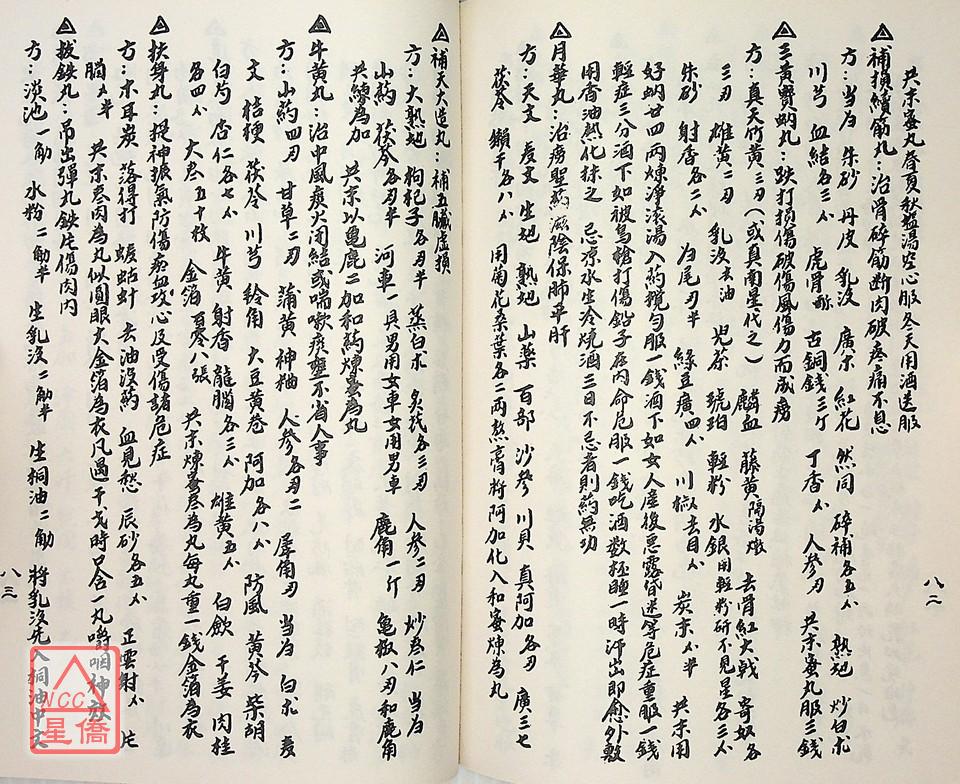 共末蜜丸春夏秋塩湯空心服冬天用酒送服
補損續筋丸：治骨碎筋断肉破疼痛不息
方：当歸 朱砂 丹皮 乳没 廣木 紅花 然同 碎補各五 熟地 炒白朮
川芎 血結各三 虎骨 古銅錢三 丁香 人參 共末蜜丸服三錢
三黃寶蚋丸：跌打損傷破傷風傷力而成癆
方：真天竹黃三刃（或真南星代之） 麟血 藤黃隔湯燉 去骨紅大戟 寄奴各
三刃 雄黃二刃 乳没去油 児茶 琥珀 輕粉 水銀用輕粉研不見星各三
朱砂 射香各二 归尾刃半 綠豆廣四 川椒去目 炭末 半 共末用
好蚋廿四兩煉淨滚湯入葯攪匀服一錢酒下如女人產後惡露昏迷等危症重服一錢
輕症三分酒下如被鳥槍打傷鉛子在內命危服一錢吃酒数杯睡一時汗出即愈外敷
用香油熱化抹之 忌凉水生冷燒酒三日不忌者則葯無功
月華丸：治癆聖葯滋陰保肺平肝
方：天文 麦文 生地 熟地 山藥 百部 沙參 川貝 真阿加各刃 廣三七
茯苓 獺干各八 用菊花桑葉各二両熬膏将阿加化入和蜜煉為丸
八二
補天大造丸：補五臟虛損
方：大熟地 枸杞子各刃半 蒸白朮 炙芪各三刃 人參二刃 炒枣仁 当歸
山葯 茯苓各刃半 河車一具男用女車女用男車 鹿角一斤 亀板八刃和鹿角
共練為加 共末以亀鹿二加和葯煉蜜為丸
牛黃丸：治中風痰火閉結或喘嗽痰壅不省人事
方：山葯四刃 甘草二刃 蒲黃 神粬 人參各刃二 犀角刃 当歸 白朮 麦
文 桔梗 茯苓 川芎 鈴角 大豆黃卷 阿加各八 防風 黃芩 柴胡
白芍 杏仁各七 牛黃 射香 龍腦各三 雄黃五 白歛 干姜 肉桂
各四 大枣五十枚 金箔百零八張 共末煉蜜枣為丸每丸重一錢金箔為衣
扶身丸：提神振氣防傷瘀血攻心及受傷諸危症
方：木耳炭 落得打 蝼蛄虲 去油没葯 血見愁 辰砂各五 正雲射 片
腦 半 共末枣肉為丸似圓眼大金箔為衣凡遇干戈時口含一丸嚼咽神效
拔鉄丸：吊出彈丸鉄片傷肉內
方：滋池一觔 水粉二觔半 生乳没二觔半 生桐油二觔 將乳没先入桐油中文
八三
NCC
星僑